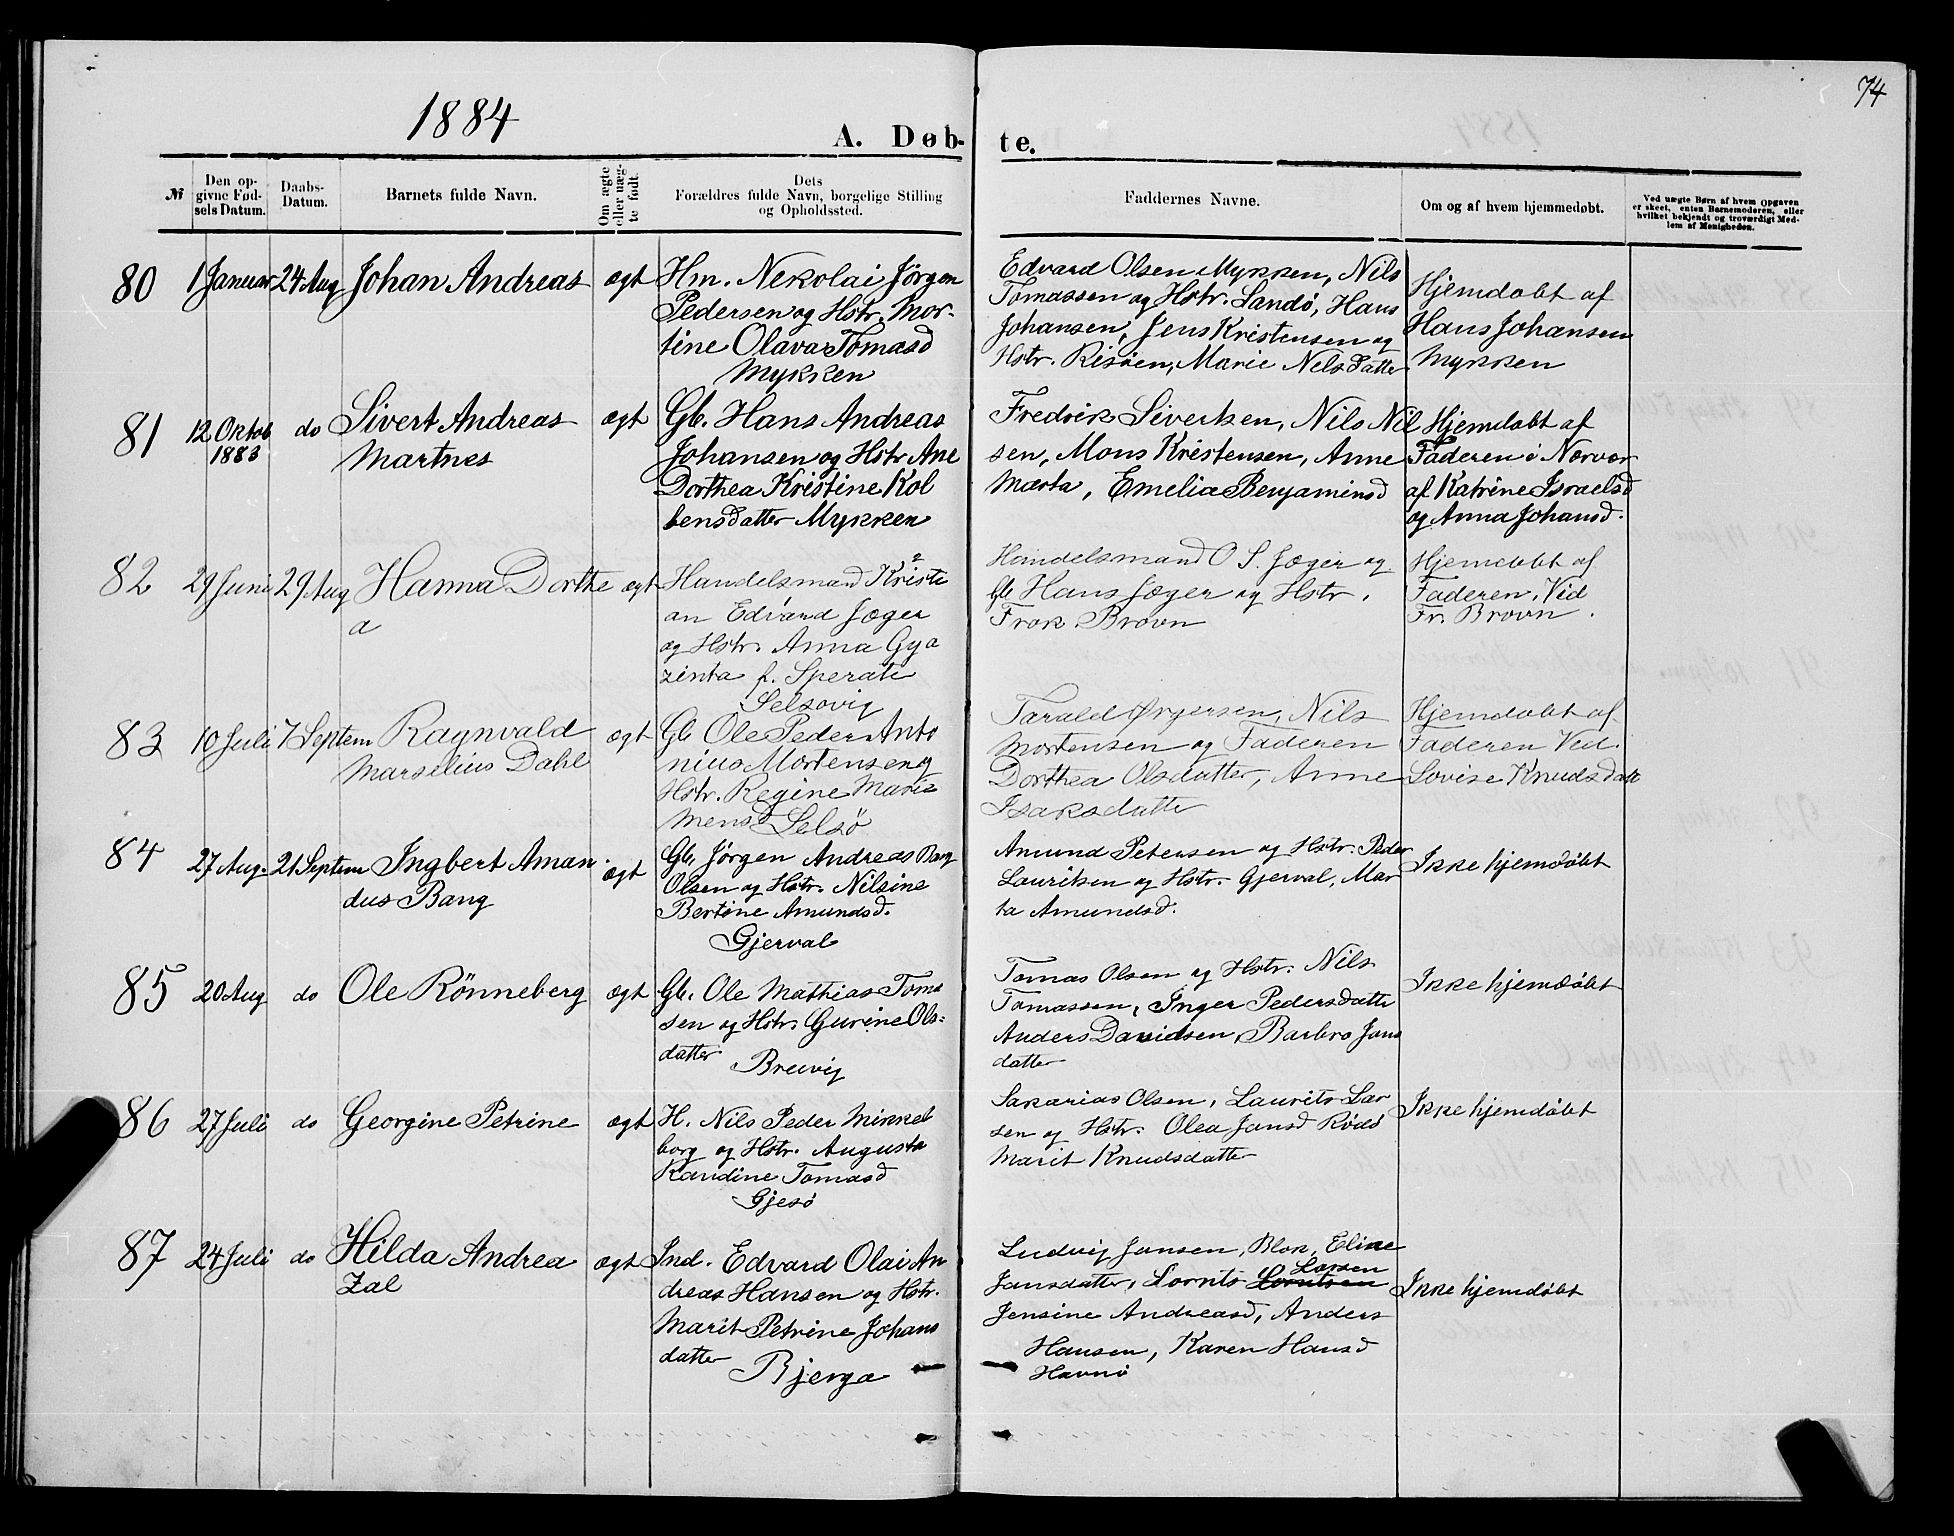 74
1884
A. Døb-
te.
№
Den op-
givne Fød-
sels Datum.
Daabs-
Datum.
Barnets fulde Navn.
Om ægte
eller uæg-
te født.
Dets
Forældres fulde Navn, borgelige Stilling
og Opholdssted.
Faddernes Navne.
Om og af hvem hjemmedøbt.
Ved uægte Børn af hvem Opgaven
er skeet, enten Barnemoderen, eller
hvilket bekjendt og troværdigt Med-
lem af Menigheden.
80
1 Januar
24 Aug
Johan Andreas
ægt
Hm. Nekolai Jörgen
Pedersen og Hstr. Mor-
tine Olava Tomasd
Mykken
Edvard Olsen Mykken, Nils
Tomassen og Hstr. Sandö, Hans
Johansen, Jens Kristensen og
Hstr. Risöen, Marie Nelsdatter
Hjemdøbt af
Hans Johansen
Mykken
81
12 Oktob
1883
do
Sivert Andreas
Martnes
ægt
Gb. Hans Andreas
Johansen og Hstr Ane
Dorthea Kristine Kol
bensdatter Mykken
Fredrik Sivertsen, Nils Nil
sen, Mons Kristensen, Anne
Marta, Emelia Benjaminsd
Hjemdøbt af
Faderen i Nærvær
af Katrine Israelsd
og Anna Johansd.
82
29 Juni
29 Aug
Hanna Dorthe
a
ægt
Handelsmand Kristi
an Edvard Jæger
og Hstr. Anna Gya
zinta f. Sperati
Selsovig
Handelsmand O S. Jæger og
Gb Hans Jæger og Hstr.
Frøk Brovn
Hjemdøbt af
Faderen. Vid
Fr. Brovn
83
10 Juli
7 Septem
Ragnvald
Marselius Dahl
ægt
Gb Ole Peder Anto
nius Mortensen og
Hstr. Regine Marie
Mensd Selsö
Tarald Örgersen, Nils
Mortensen og Faderen
Dorthea Olsdatter, Anne
Isaksdatter
Hjemdøbt af
Faderen Ved.
Lovise Knudsdatt
84
27 Aug.
21 Septem
Ingbert Aman
dus Bang
ægt
Gb. Jörgen Andreas Bang
Olsen og Hstr. Nilsine
Bertine Amundsd.
Gjerval
Amund Petersen og Hstr. Peder
Lauritsen og Hstr. Gjerval, Mar
ta Amundsd.
Ikke hjemdöbt
85
20 Aug
do
Ole Rönneberg
ægt
Gb. Ole Mathias Toma
sen og Hstr. Gurine Ols-
datter
Breivig
Tomas Olsen og Hstr. Nils
Tomassen, Inger Pedersdatte
Anders Davidsen, Barbro Jans
datter
Ikke hjemdöbt
86
27 Juli
do
Georgine Petrine
ægt
H. Nils Peder Mikkel
borg og Hstr. Augusta
Randine Tomasd
Gjesö
Sakarias Olsen, Laurits Lar
sen og Hstr. Olea Jansd Rödö
Marit Knudsdatter
Ikke hjemdöbt
87
24 Juli
do
Hilda Andrea
Zal
ægt
Ind. Edvard Olai An
dreas Hansen og Hstr.
Marit Petrine Johans
datter
Bjerga
Ludvig Jansen, Blok, Eline
Larsen
Jansdatter, Lornts Lorntsen
Jensine Andreasd, Anders
Hansen, Karen Hansd
Havnö
Ikke hjemdöbt